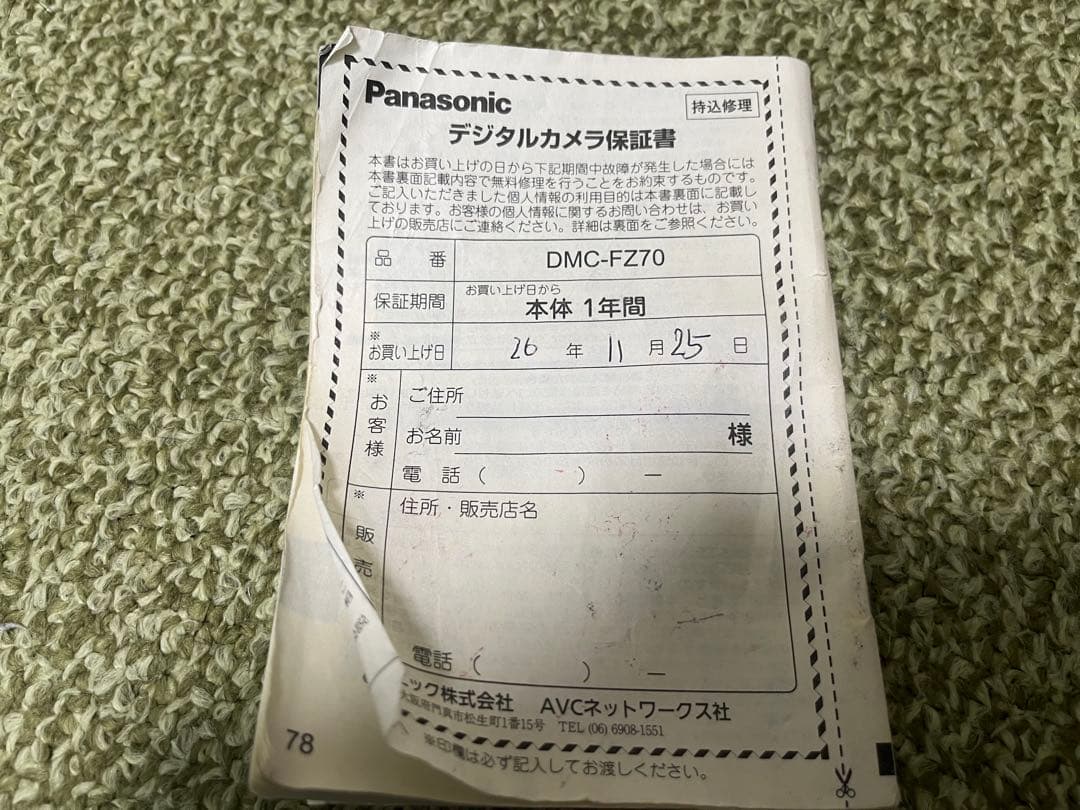 Panasonic
持込修理
デジタルカメラ保証書
本書はお買い上げの日から下記期間中故障が発生した場合には
本書裏面記載内容で無料修理を行うことをお約束するものです。
ご記入いただきました個人情報の利用目的は本書裏面に記載し
ております。お客様の個人情報に関するお問い合わせは、お買い
上げの販売店にご連絡ください。詳細は裏面をご参照ください。
品 番 DMC-FZ70
保証期間 お買い上げ日から
本体 1年間
※
お買い上げ日 26 年 11 月 25 日
※
お客様
ご住所
お名前 様
電 話 ( ) ―
※
販売
住所・販売店名
電話 ( ) ―
ック株式会社 AVCネットワークス社
大阪府門真市松生町1番15号 TEL (06) 6908-1551
78
※印欄は必ず記入してお渡しください。